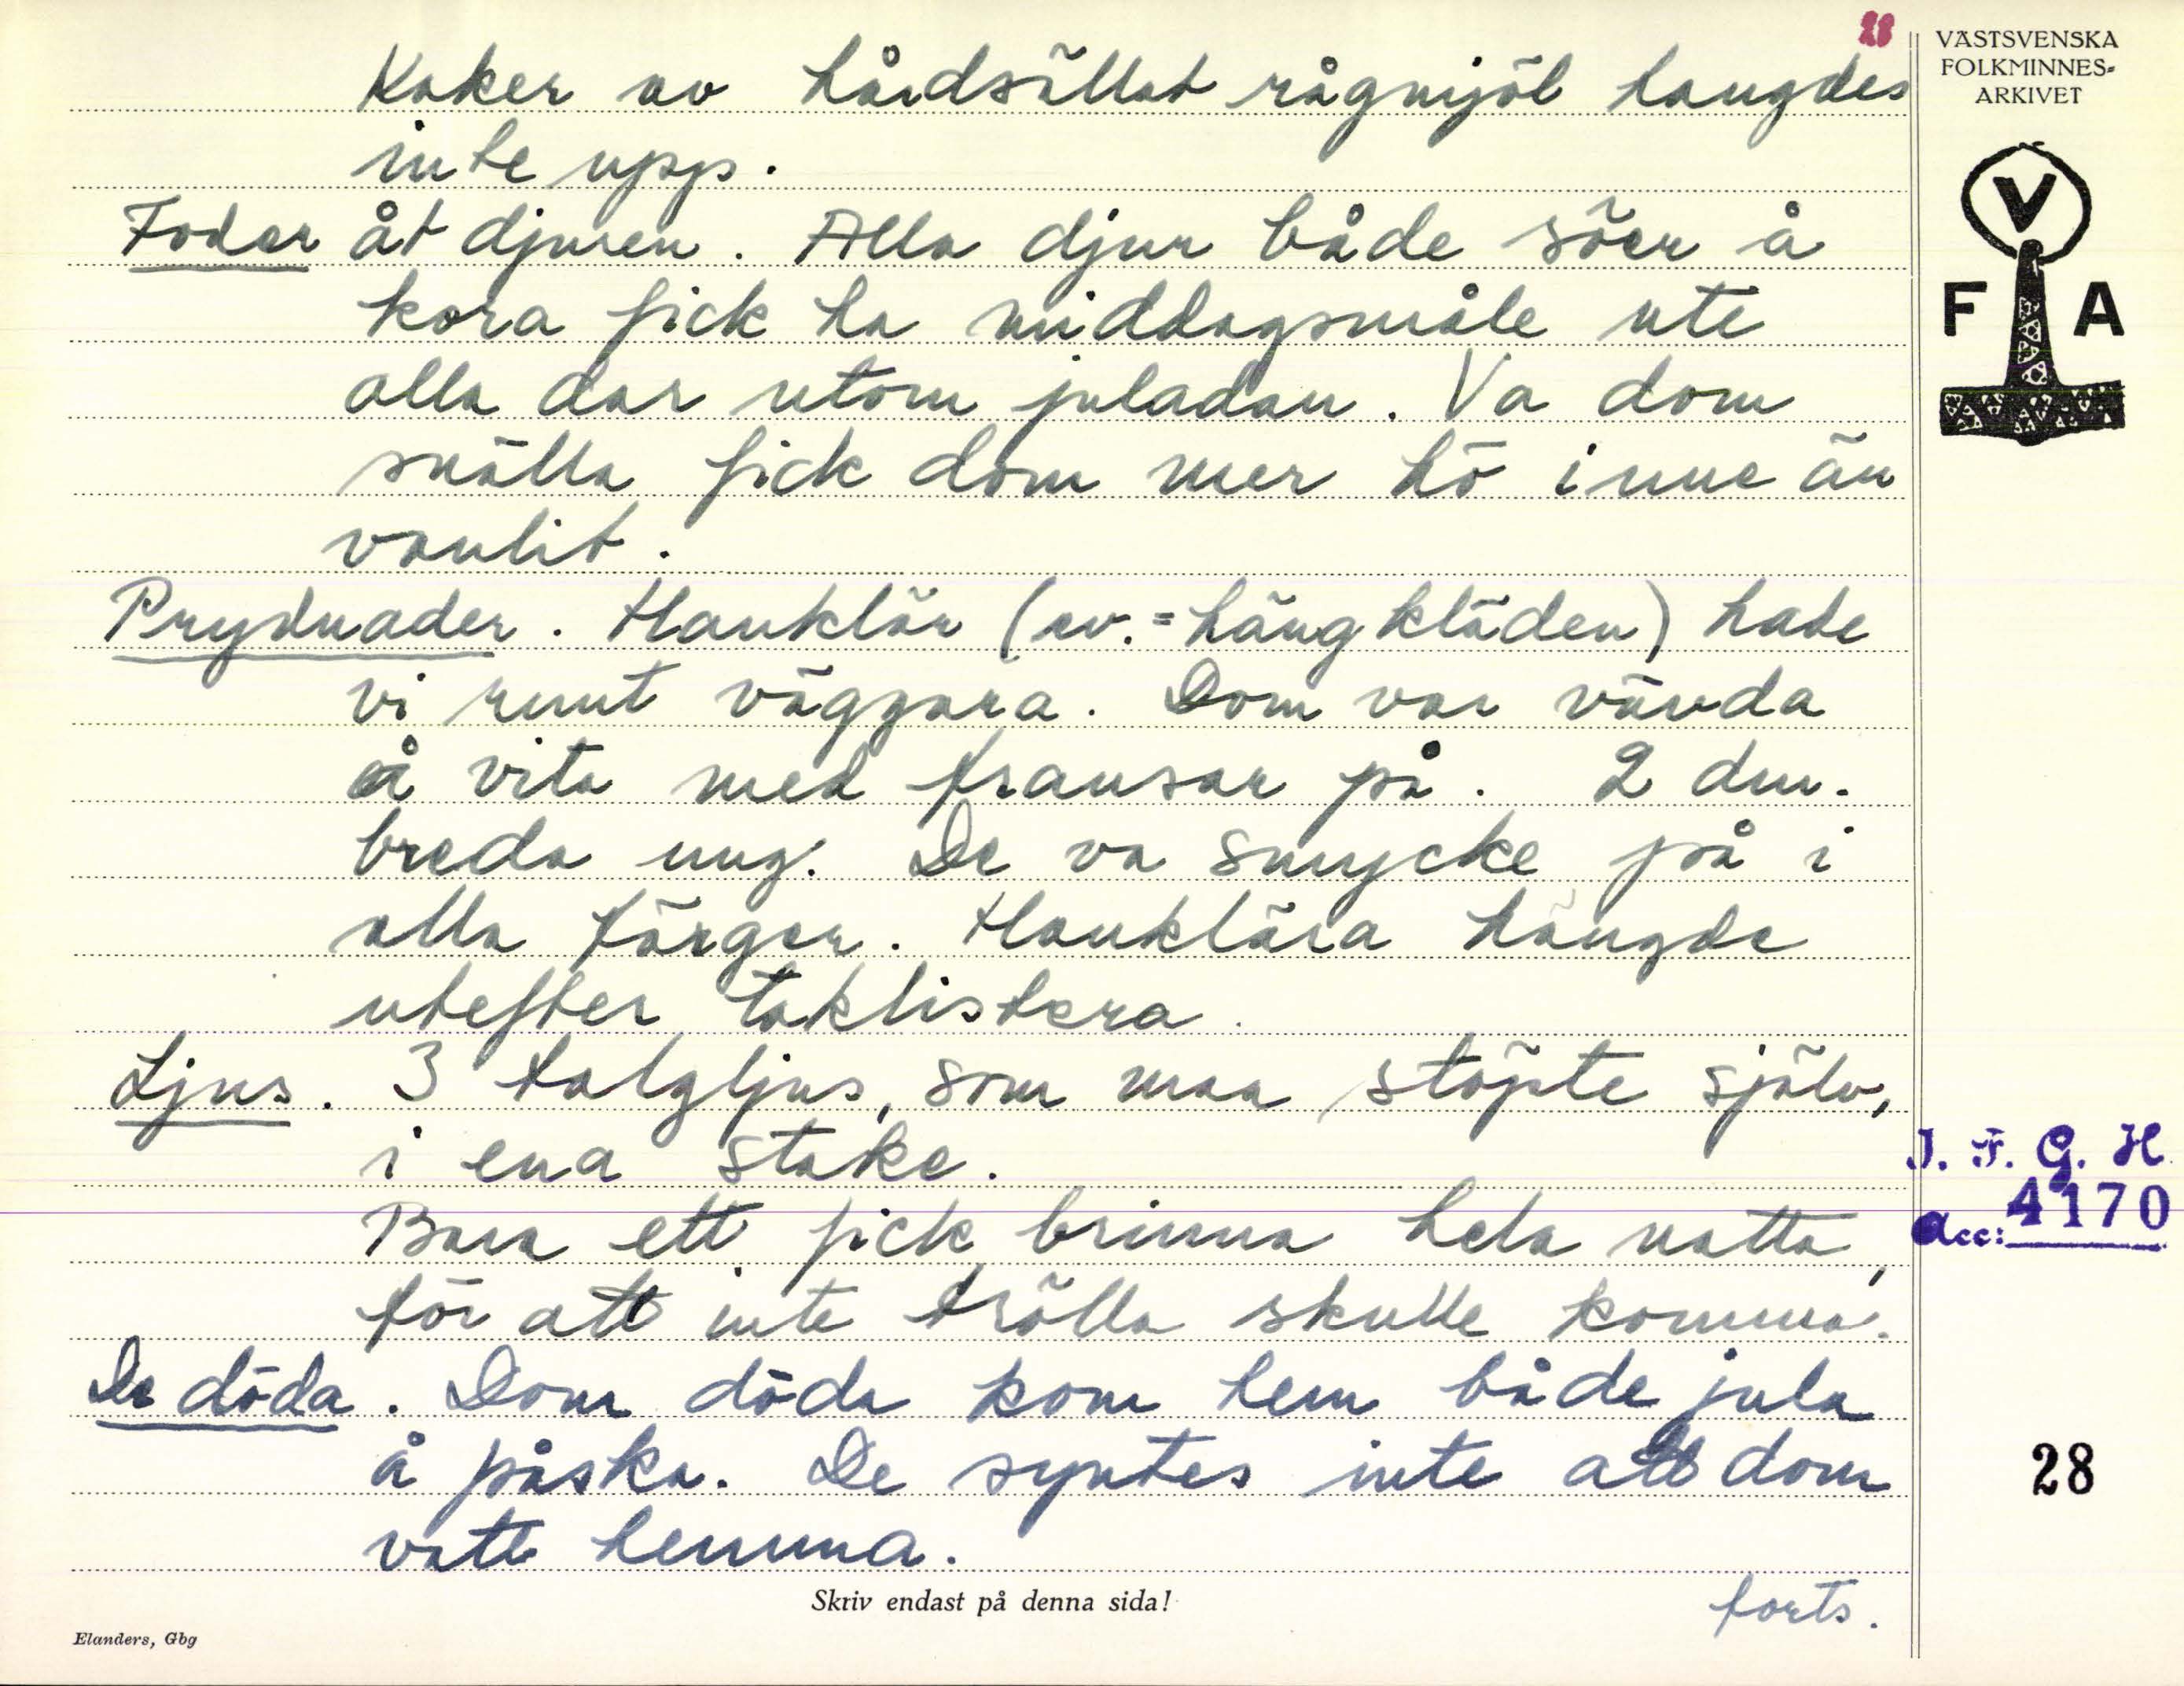 28
VÄSTSVENSKA
FOLKMINNES-
ARKIVET
V
F A
Kaker av hårdsållat rågmjöl hangdes
inte upp.
Foder åt djuren. Alla djur både söer å
kora fick ha middagsmåle ute
alla dar utom juladan. Va dom
snälla fick dom mer hö inne än
vanlit.
Prydnader. Hanklär (ev.=hängkläden) hade
vi runt väggara. Dom var vävda
å vita med fransar på. 2 dm.
breda ung. De va smycke på i
alla färger. Hanklära hängde
utefter taklistera.
Ljus. 3 talgljus, som maa stöpte själv,
i ena stake.
Bara ett fick brinna hela natta,
för att inte trölla skulle komma.
De döda. Dom döda kom hem både jula
å påska. De syntes inte att dom
vatt hemma.
forts.
I. F. G. H.
Acc: 4170
28
Skriv endast på denna sida!
Elanders, Gbg